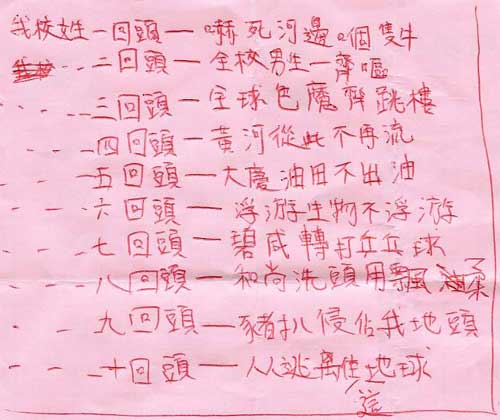 我校女生一回頭—嚇死河邊嗰隻牛
- - - 二回頭—全校男生一齊嘔
- - - 三回頭—全球色魔齊跳樓
- - - 四回頭—黃河從此不再流
- - - 五回頭—大慶油田不出油
- - - 六回頭—浮游生物不浮游
- - - 七回頭—碧咸轉打乒乓球
- - - 八回頭—和尚洗頭用飄柔
- - - 九回頭—豬扒侵佔我地頭
- - - 十回頭—人人逃離這地球